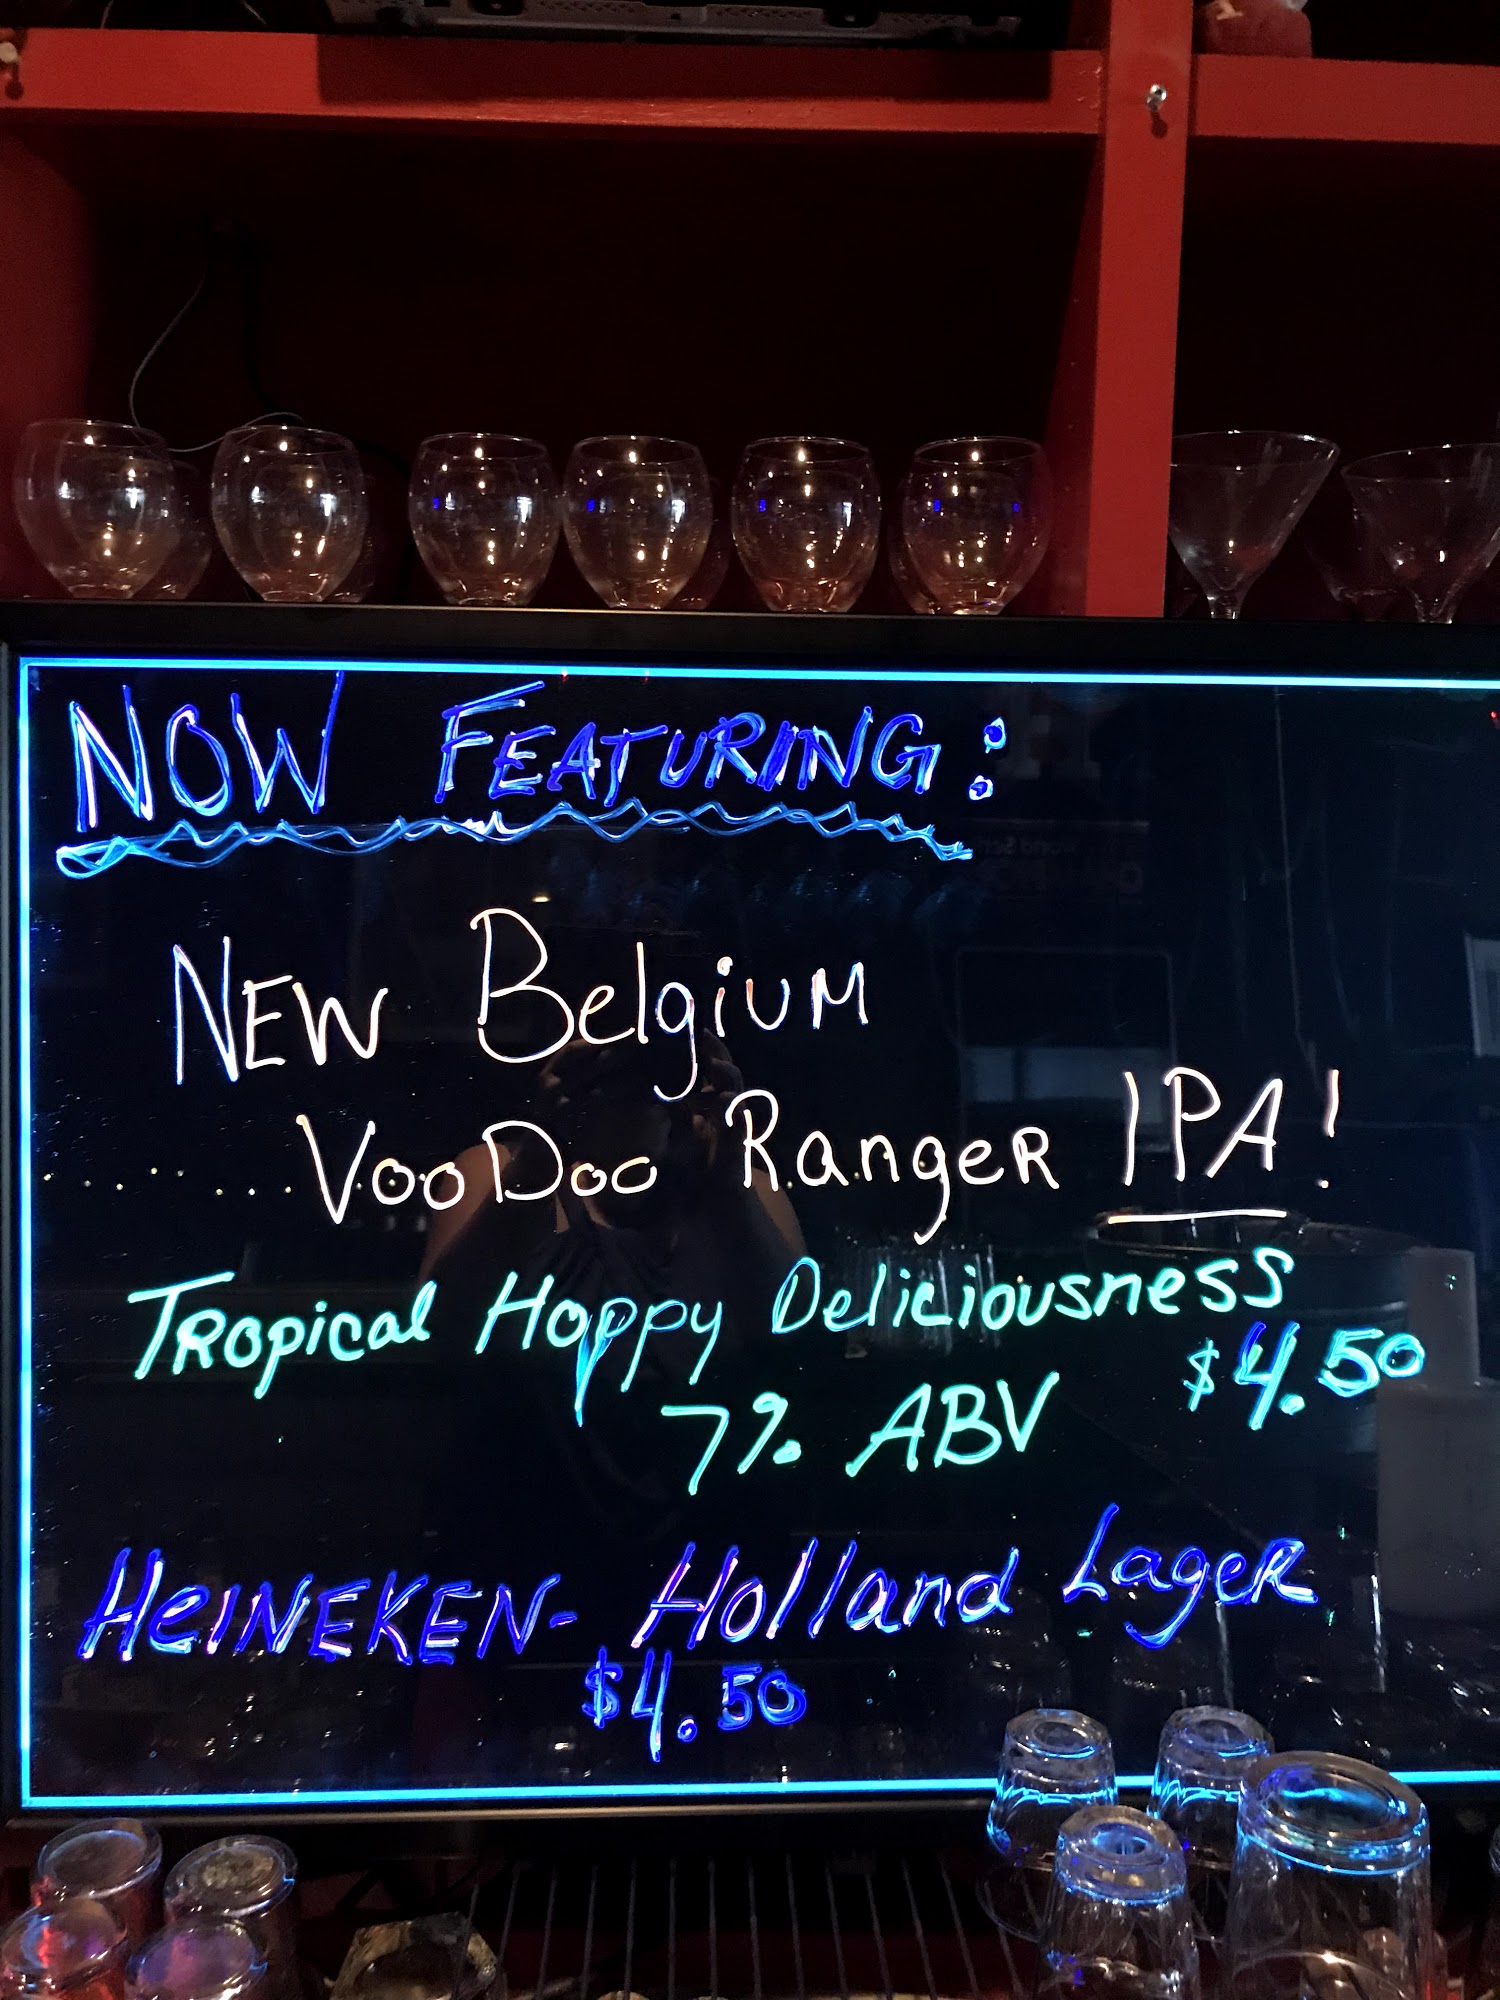 NOW FEATURING:
NEW BelgiUM
VooDoo RangeR IPA!
TROpical Hoppy Deliciousness
$4.50
7% ABV
HeINEKEN- Holland LageR
$4.50